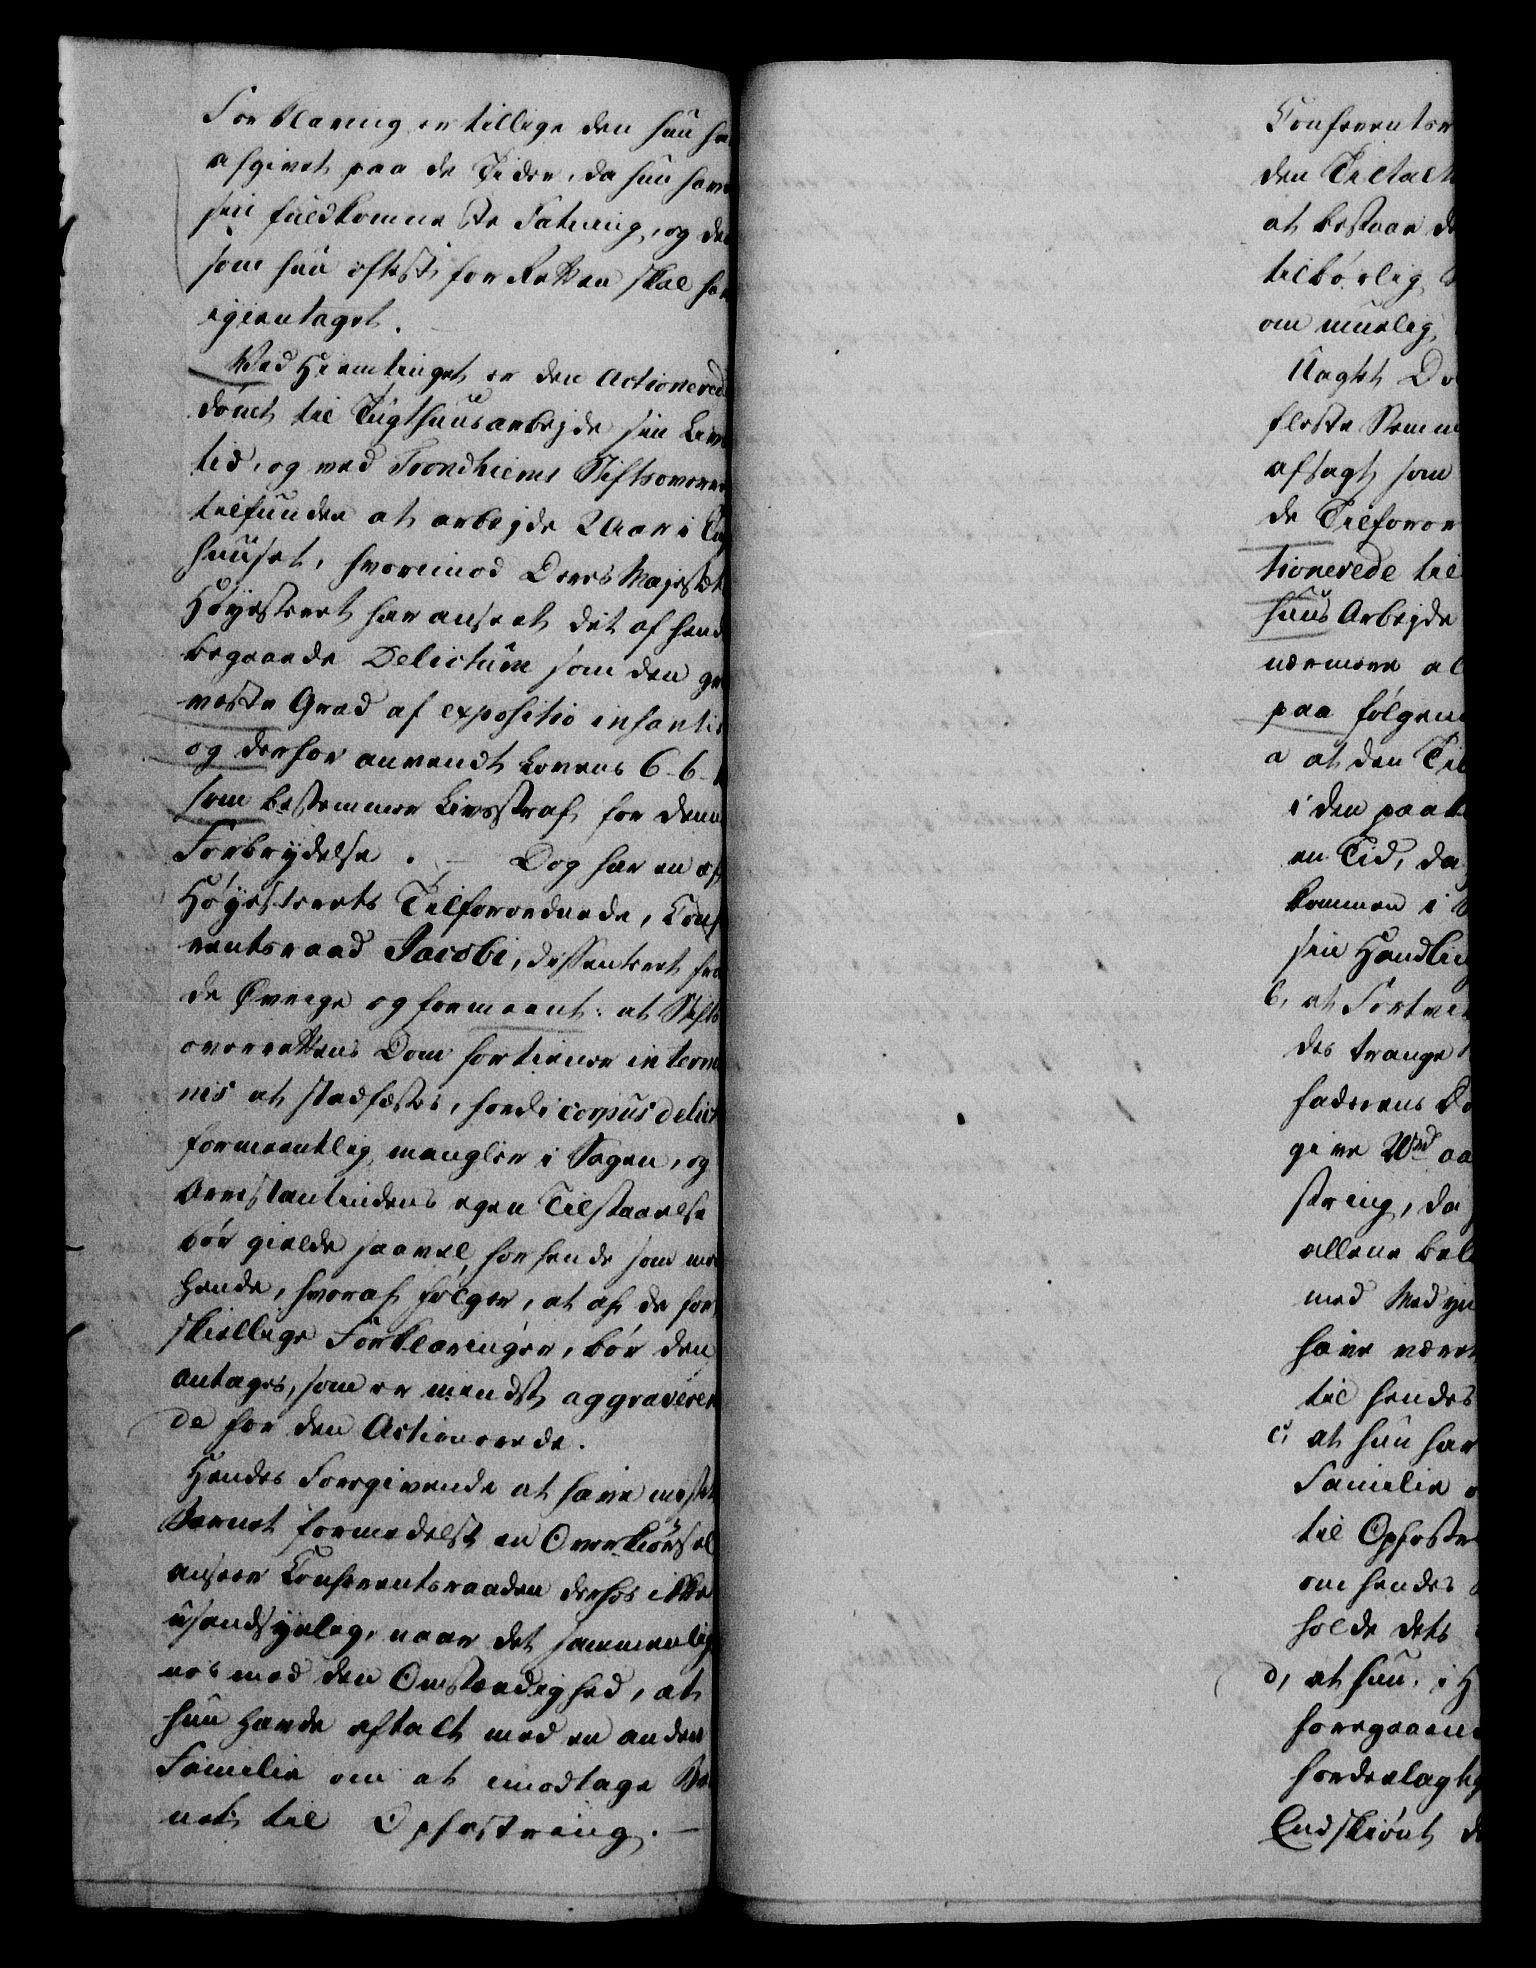 Forklaring er tillige den hun ha
afgivet paa de Tider, da hun hav
sin fuldkomneste Fatning, og de
som hun oftest for Retten skal ha
igientaget.
Ved Hiemtinget er den Actionered
dömt til Tugthuusarbejde sin Livs
tid, og ved Trondhiems Stiftsoverr
tilfunden at arbejde 2 Aar i Tug
huuset, hvorimod Deres Majestæt
Höyesteret har anseet det af hend
begaaede Delictum som den gr
veste Grad af expositio infantis
og derfor anvendt Lovens 6-6-
som bestemmer Livsstraf for denn
Forbrydelse. — Dog har en af
Höyesterets Tilforordnede, Conf
rentsraad Jacobi, dissenteret fra
de Øvrige og formeent: at Stifts
overrettens Dom fortiener in termi
nis at stadfæstes, fordi corpus delict
formeentlig mangler i Sagen, og
Arrestantindens egen Tilstaaelse
bör gielde saavel for hende som mo
hende, hvoraf fölger, at af de for
skiellige Forklaringer, bör den
antages, som er mindst aggraveren
de for den Actionerede.
Hendes Foregivende at have mistet
Barnet formedelst en Overkiörsel
anseer Conferentsraaden derhos ikke
usandsynlig, naar det sammenlig
nes med den Omstændighed, at
hun havde aftalt med en anden
Familie om at modtage Bar
net til Opfostring. —
Conferentsr
den
at bestaae de
tilbörlig
om muelig
Uagtet Do
fleste Stemm
afsagt som
de Tilforor
tionerede til
huus Arbejde
nærmere al
paa fölgend
a at den Til
i den paak
en Tid, da
kommen i
sin Handling
b, at Fortvi
des trange
faderens Dö
give 2 Rd aa
string, da
allene bel
med Medyn
have været
til hendes
c, at hun har
Familie o
til Opfostr
om hendes
holde dets
d, at hun i H
foregaaend
fordeelagtig
Endskiönt d